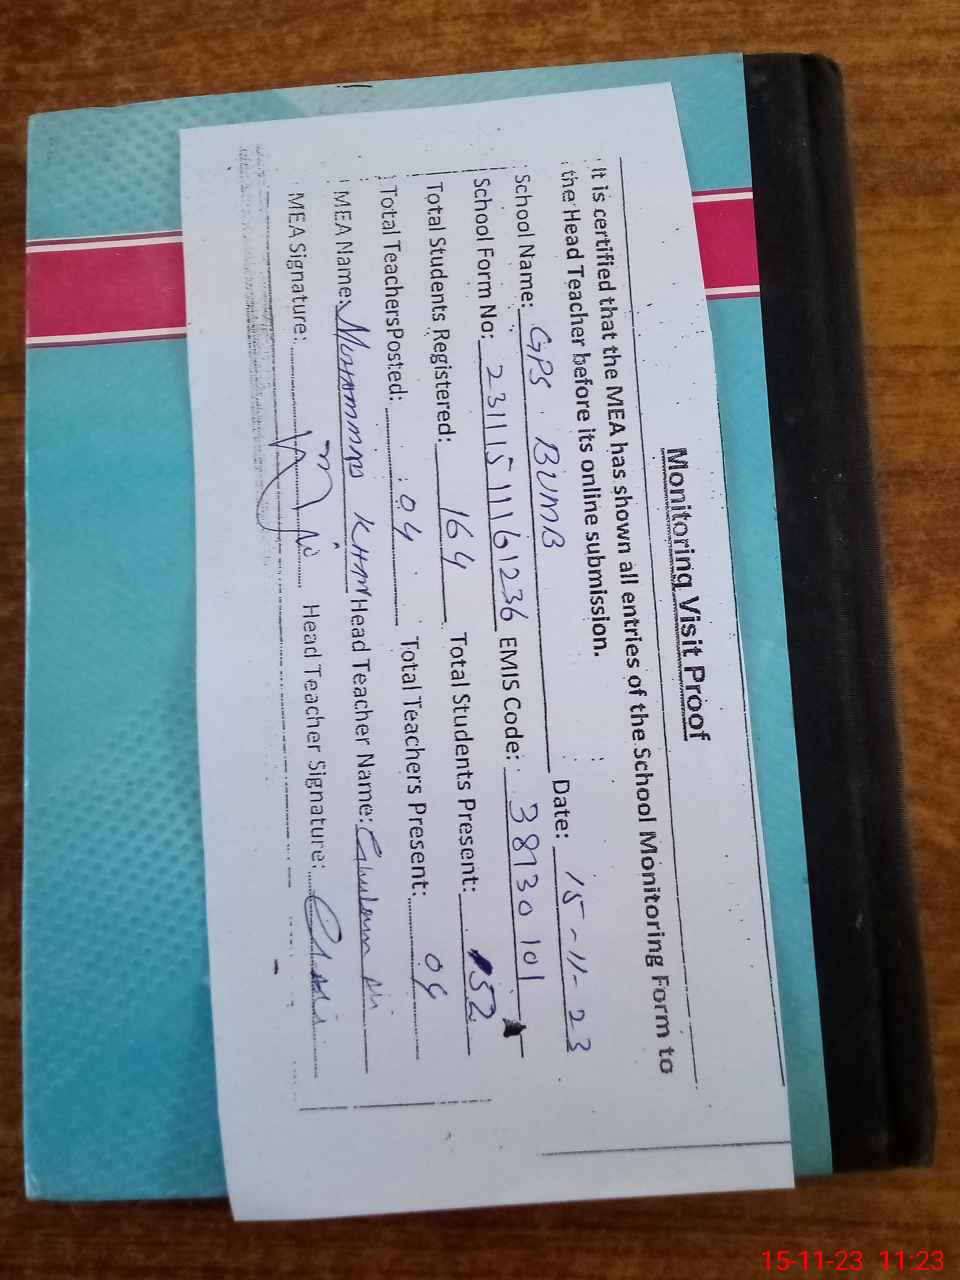 Monitoring Visit Proof
It is certified that the MEA has shown all entries of the School Monitoring Form to
the Head Teacher before its online submission.
School Name: GPS BUMB Date: 15-11-23
School Form No: 23111511161236 EMIS Code: 38130101
Total Students Registered: 164 Total Students Present: 152
Total Teachers Posted: 04 Total Teachers Present: 04
MEA Name: MUHAMMAD KHAN Head Teacher Name: Ghulam
MEA Signature: Head Teacher Signature:
15-11-23 11:23